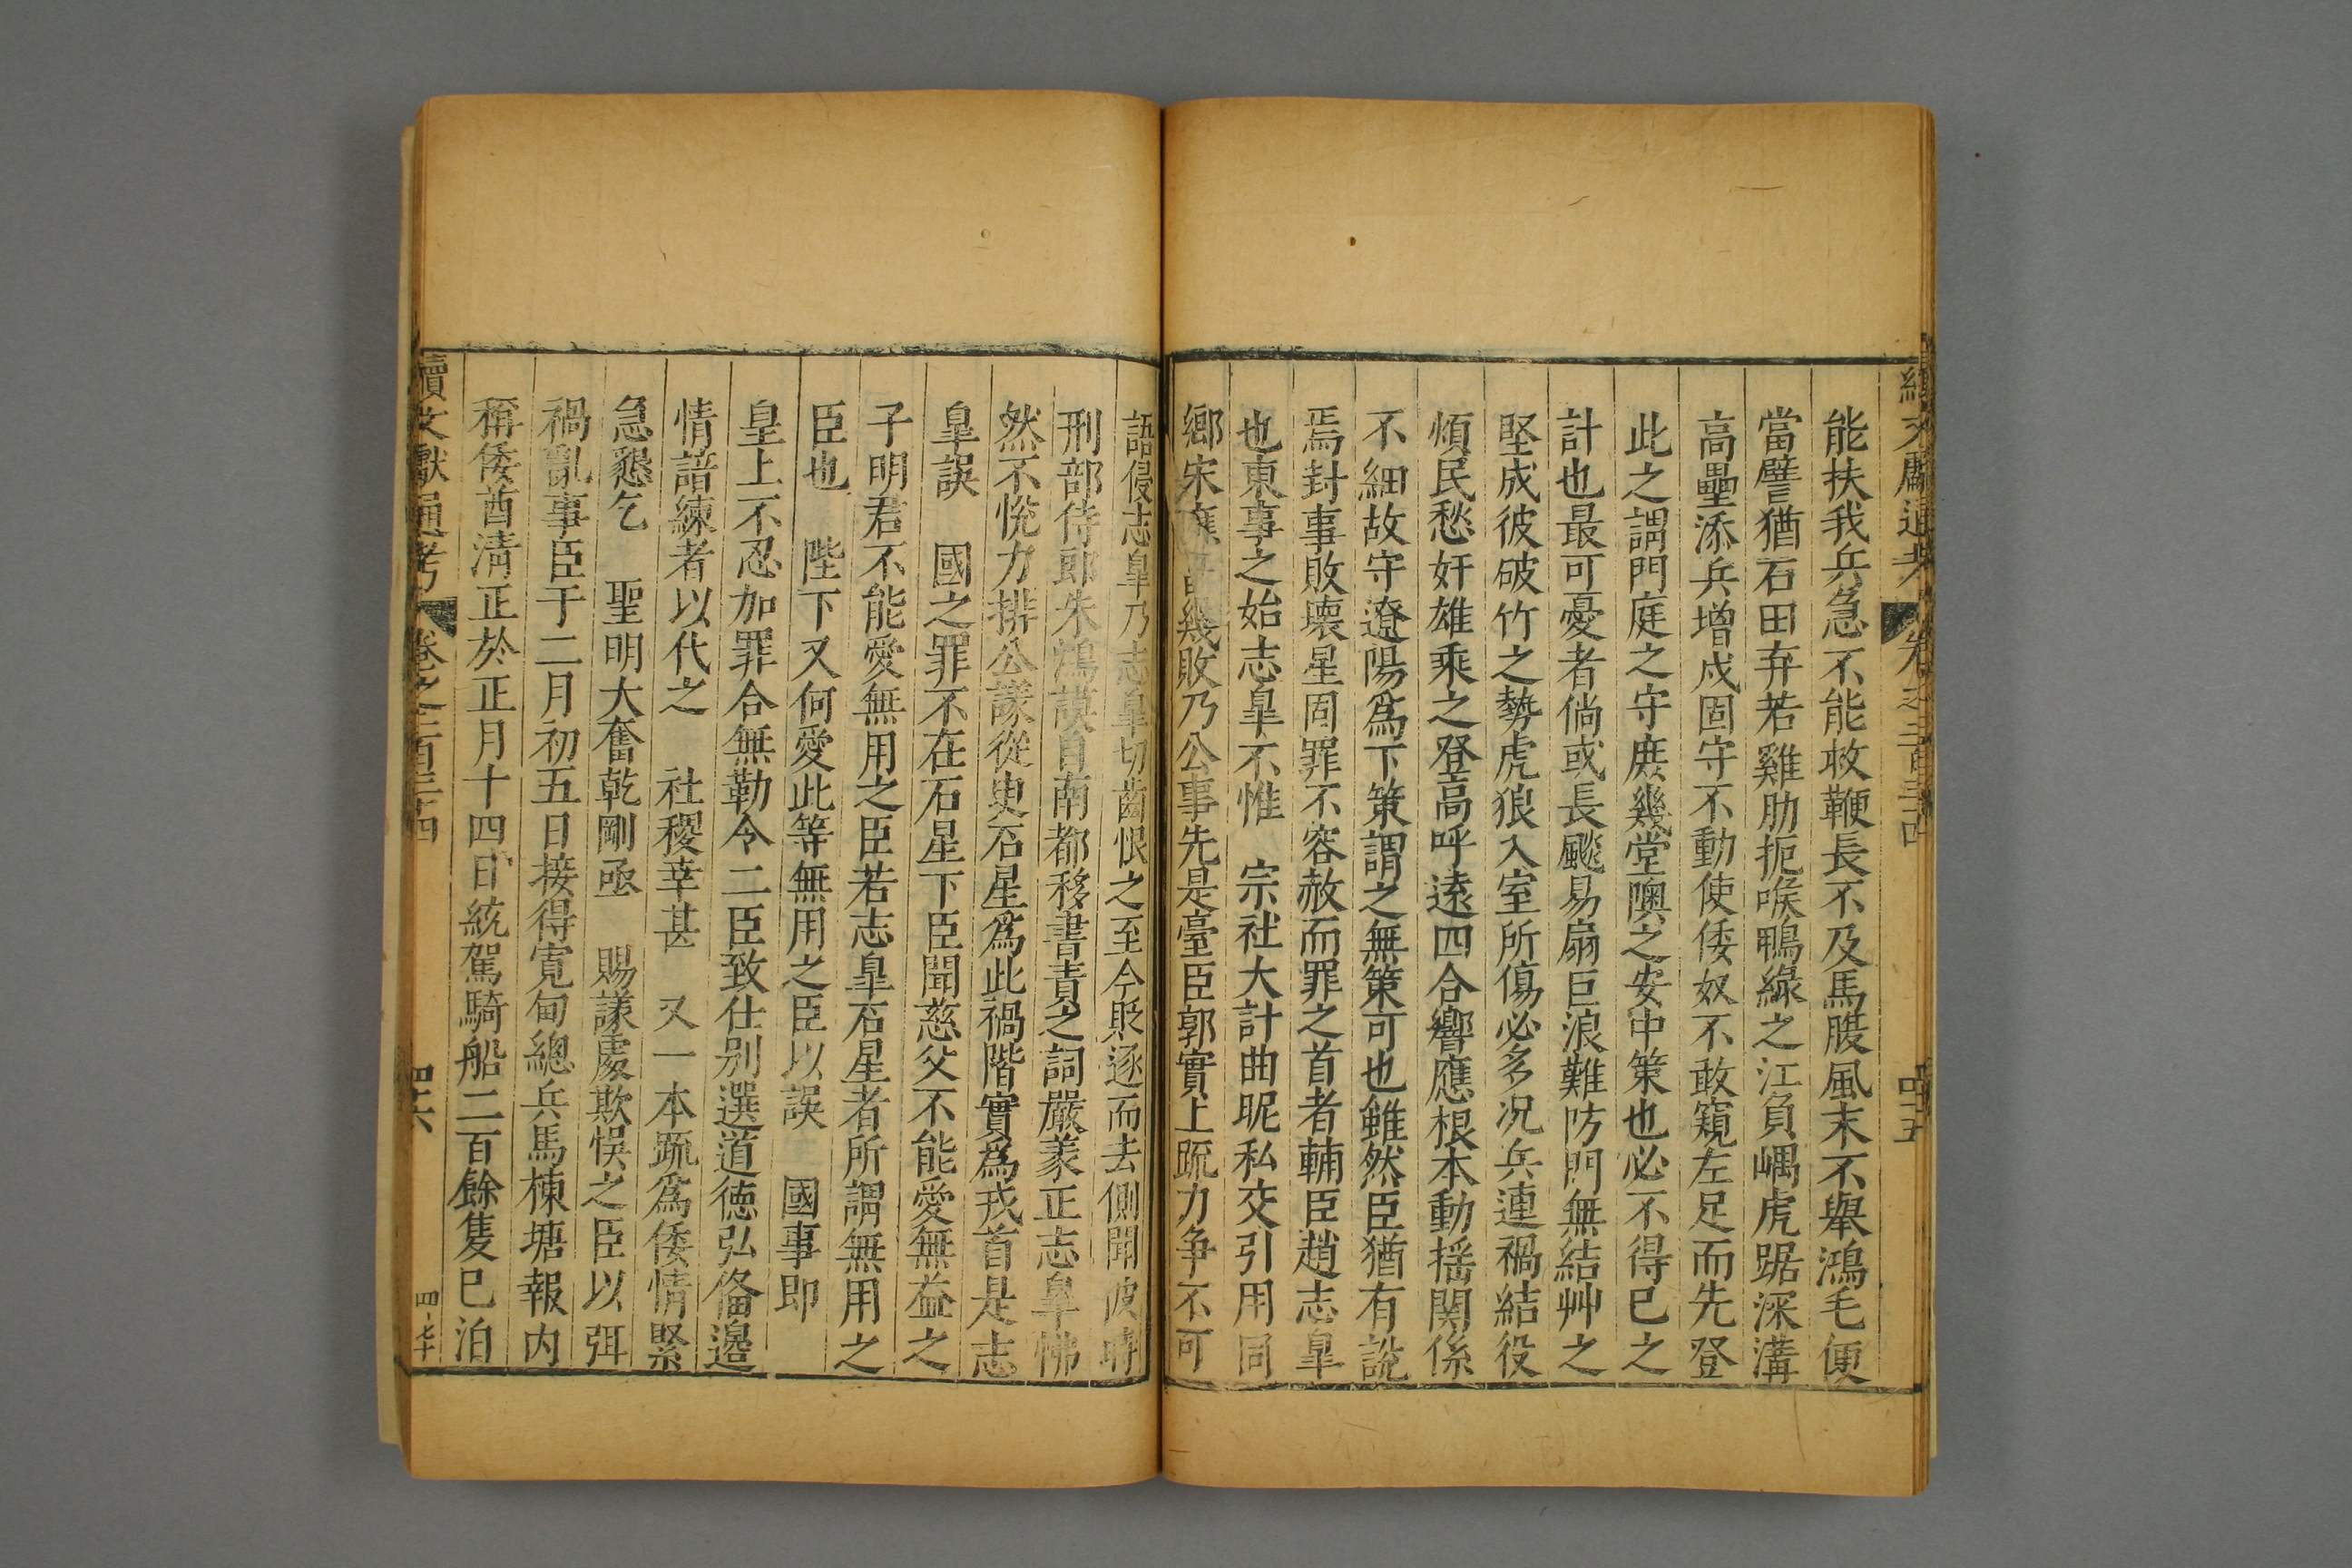 續文獻通考 卷之二百三十四 四十五
能扶我兵急不能救鞭長不及馬腹風末不舉鴻毛便
當譬猶石田弃若雞肋扼喉鴨綠之江負嵎虎踞深溝
高壘添兵增戍固守不動使倭奴不敢窺左足而先登
此之謂門庭之守庶幾堂隩之安中策也必不得已之
計也最可憂者倘或長颷易扇巨浪難防門無結艸之
堅成彼破竹之勢虎狼入室所傷必多况兵連禍結役
煩民愁奸雄乘之登高呼遠四合響應根本動搖関係
不細故守遼陽為下策謂之無策可也雖然臣猶有說
焉封事敗壞星固罪不容赦而罪之首者輔臣趙志臯
也東事之始志臯不惟 宗社大計曲昵私交引用同
鄉宋應昌幾敗乃公事先是臺臣郭實上疏力争不可
語侵志臯乃志臯切齒恨之至今貶逐而去側聞彼時
刑部侍郎朱鴻謨自南都移書責之詞嚴義正志臯怫
然不悅力排公議從臾石星為此禍階實為戎首是志
臯誤 國之罪不在石星下臣聞慈父不能愛無益之
子明君不能愛無用之臣若志臯石星者所謂無用之
臣也 陛下又何愛此等無用之臣以誤 國事即
皇上不忍加罪合無勒令二臣致仕别選道徳弘俻邉
情諳練者以代之 社稷幸甚 又一本疏為倭情緊
急懇乞 聖明大奮乾剛亟 賜議處欺悞之臣以弭
禍亂事臣于二月初五日接得寬甸總兵馬棟塘報内
稱倭酋清正於正月十四日統駕騎船二百餘隻已泊
續文獻通考 卷之二百三十四 四十六
四·七十